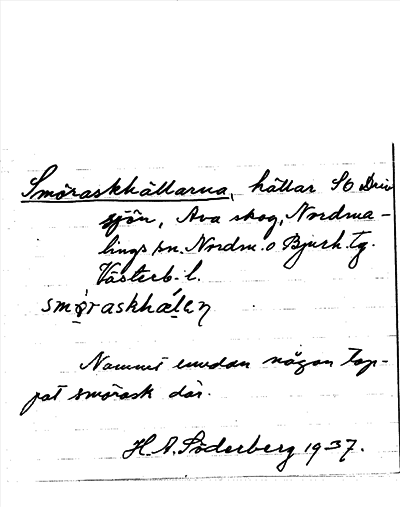 Smöraskhällarna, hällar SO Driv
sjön, Ava skog, Nordma-
lings sn. Nordm. o Bjurh. tg.
Västerb. l.
smöraskhälen
Namnet emedan någon tap-
pat smörask där.
H. A. Söderberg 1937.